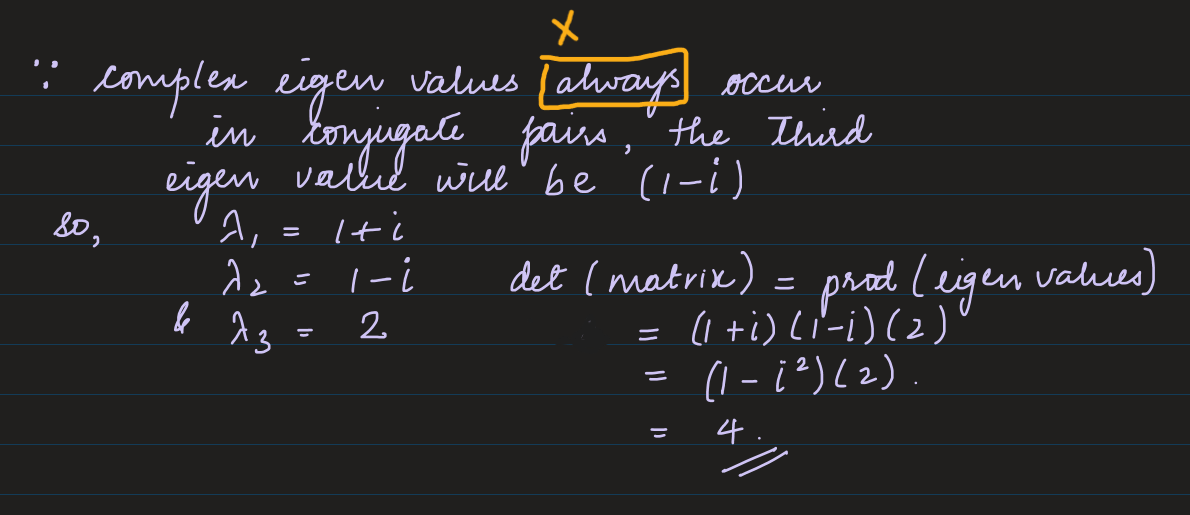 X
∵ complex eigen values always occur
in conjugate pairs, the third
eigen value will be (1-i)
so, λ₁ = 1+i
λ₂ = 1-i det (matrix) = prod (eigen values)
& λ₃ = 2 = (1+i)(1-i)(2)
= (1-i²)(2).
= 4.